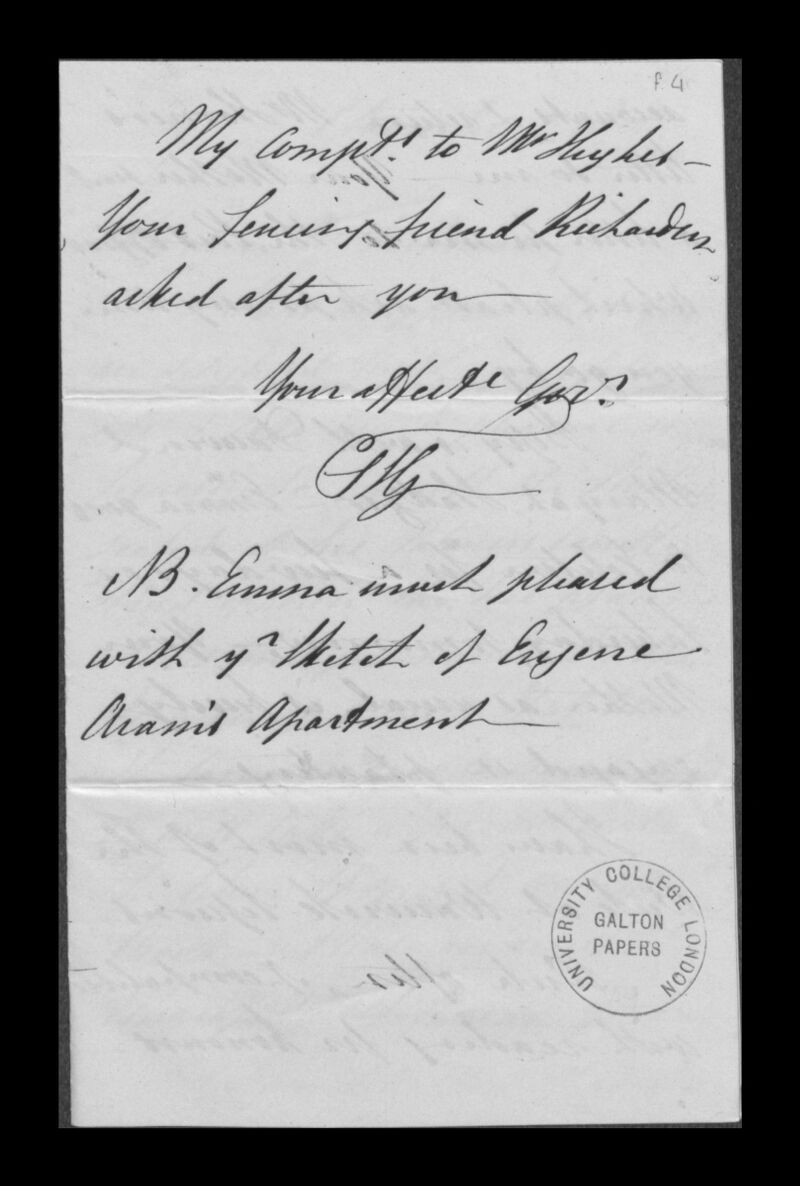 f. 4
My Compts. to Mr Hughes —
Your Fencing friend Richardson
asked after you —
Your affecte Govr.
STG
NB. Emma much pleased
with yr Sketch of Eugene
Aram's Apartment —
UNIVERSITY COLLEGE LONDON
GALTON
PAPERS